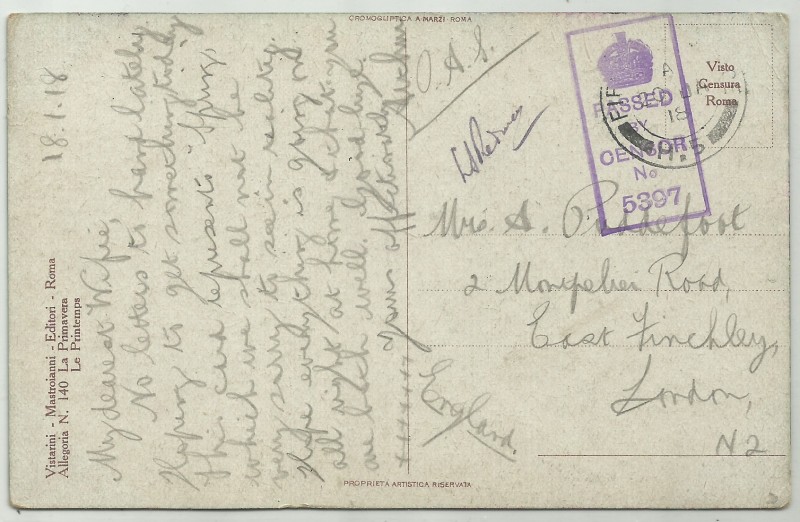 CROMOGLIPTICA A. MARZI - ROMA
Vistarini - Mastroianni - Editori - Roma
Allegoria N. 140 La Primavera
Le Printemps
18.1.18
My dearest Wifie,
No letters to hand lately
Hoping to get something today
This card represents "Spring,"
which we shall not be
very sorry to see in reality.
Hope everything is going on
all right at home & that you
are both well. Good bye.
Yours affectionately
O.A.S.
PASSED
BY
CENSOR
No
5397
A
20 JA
18
H.5
Visto
Censura
Roma
Mrs. A. Puddefoot
2 Montpelier Road,
East Finchley,
London,
N2
England.
PROPRIETÀ ARTISTICA RISERVATA